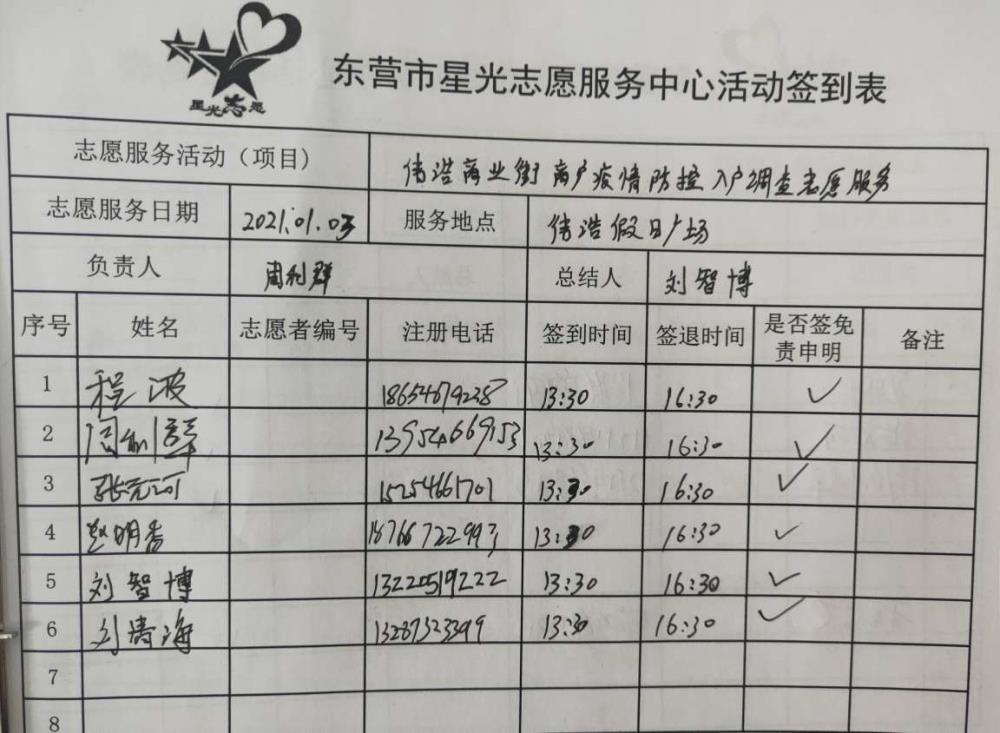 星光志愿
东营市星光志愿服务中心活动签到表
志愿服务活动（项目） 伟浩商业街商户疫情防控入户调查志愿服务
志愿服务日期 2021.01.03 服务地点 伟浩假日广场
负责人 周利群 总结人 刘智博
序号 姓名 志愿者编号 注册电话 签到时间 签退时间 是否签免责申明 备注
1 程波 18654679238 13:30 16:30 ✓
2 周利群 13954669153 13:30 16:30 ✓
3 张元可 15254661701 13:30 16:30 ✓
4 赵明香 18766722993 13:30 16:30 ✓
5 刘智博 13220519222 13:30 16:30 ✓
6 刘涛海 13287323399 13:30 16:30 ✓
7
8